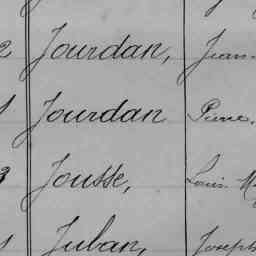 2 Jourdan, Jean-
1 Jourdan Pierre.
3 Jousse, Louis
1 Juban, Joseph